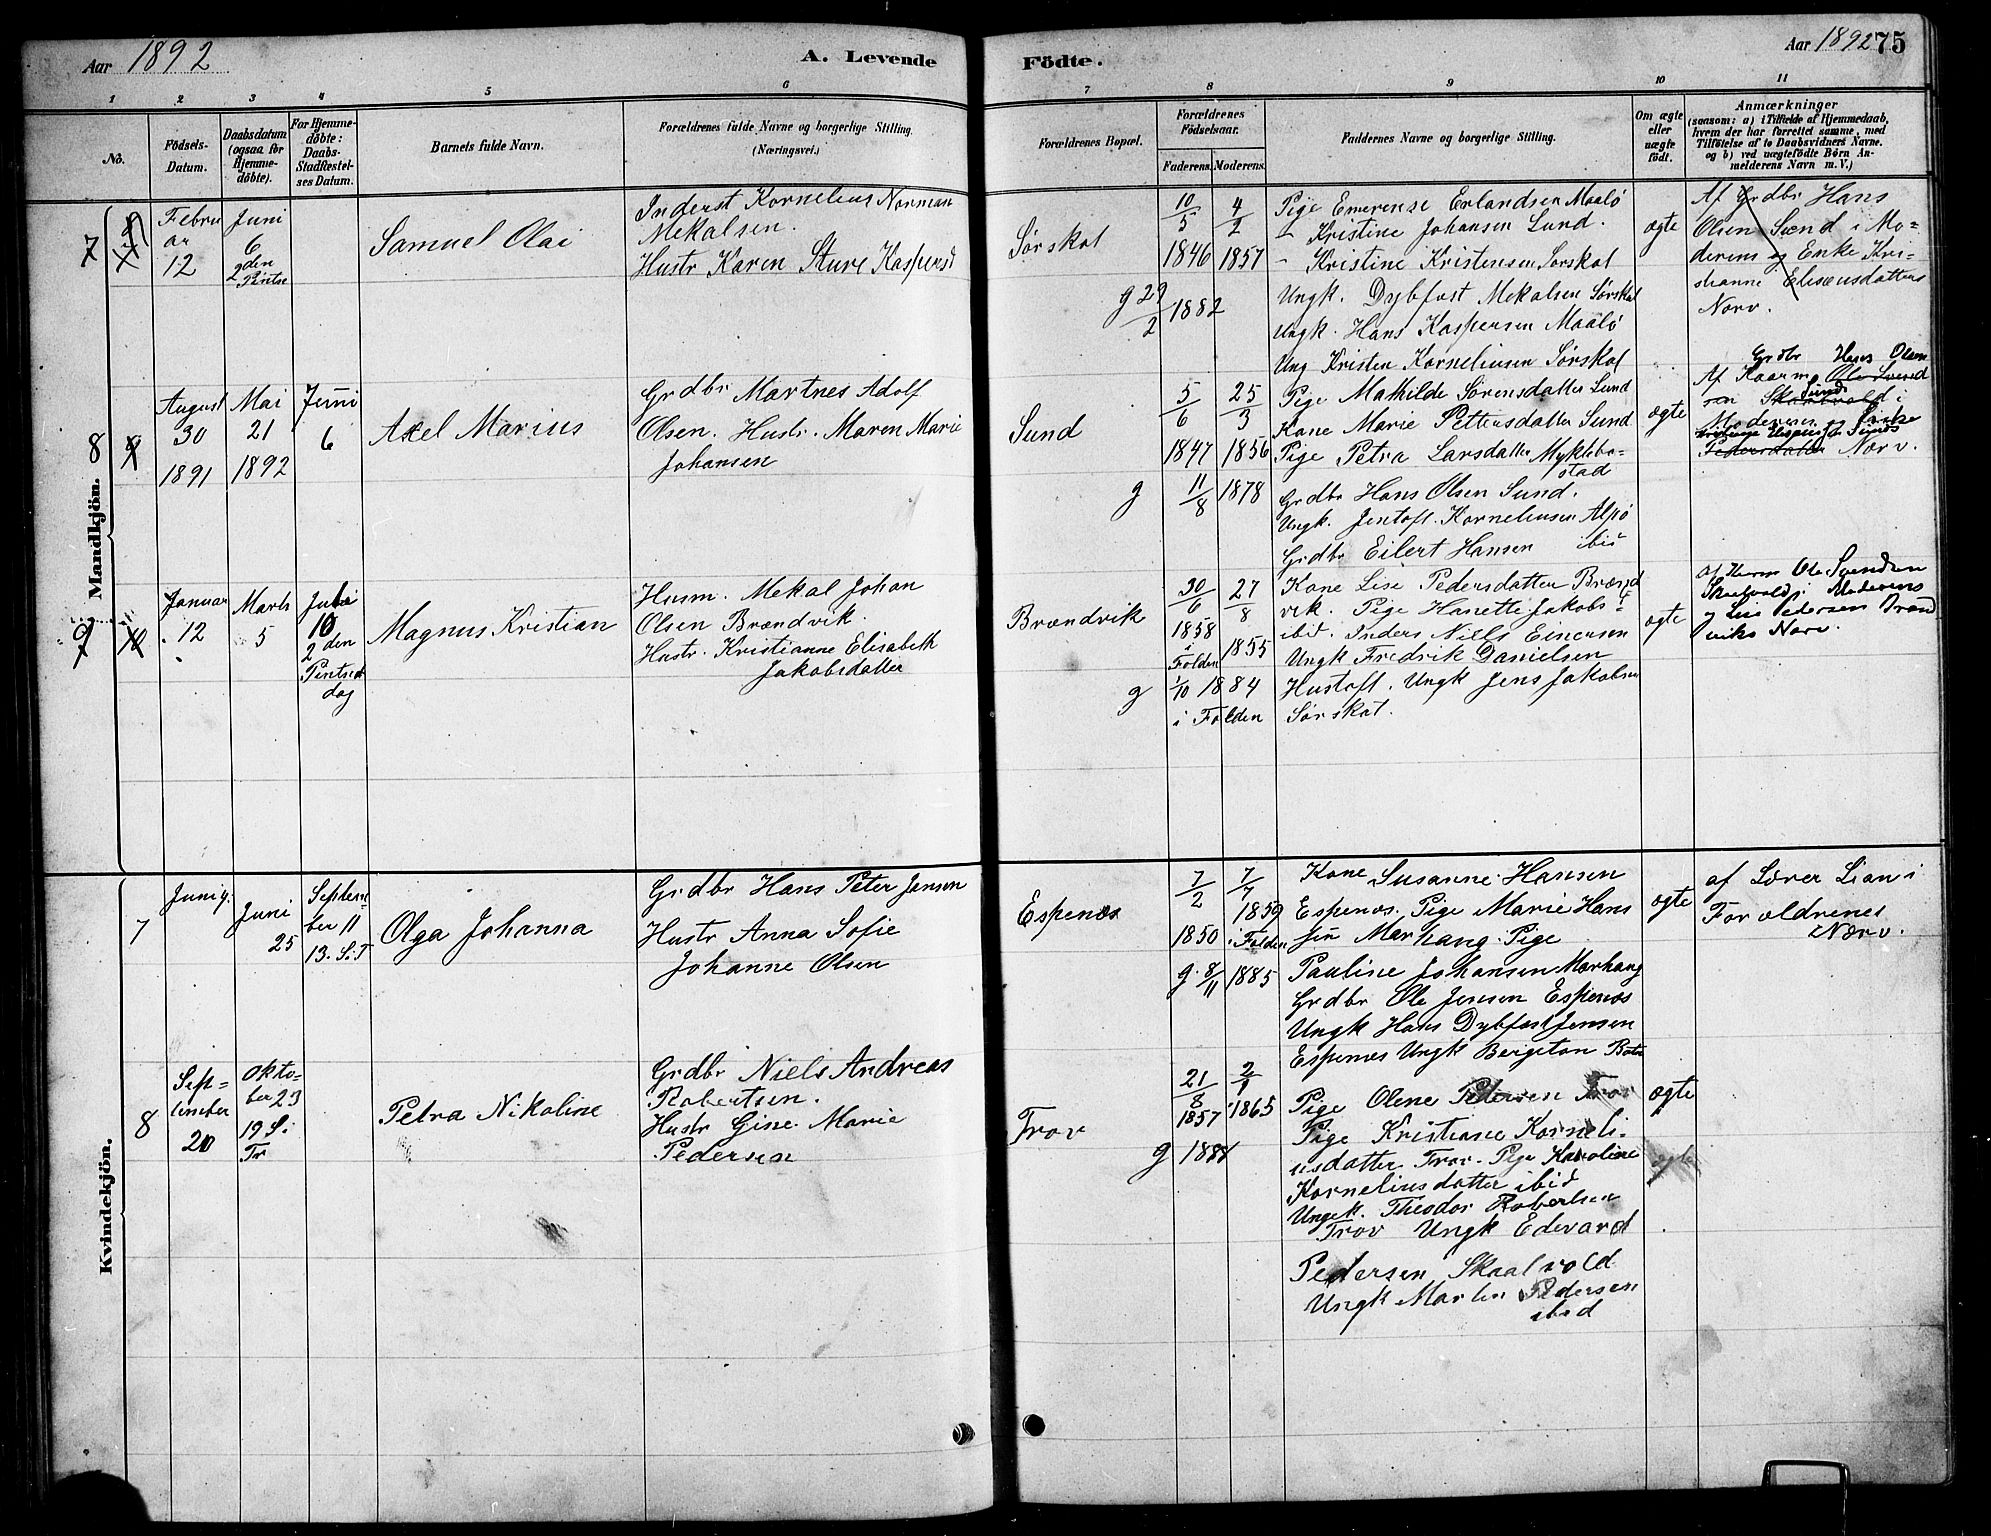 Aar 1892
A. Levende
Födte.
Aar 1892
75
1 2 3 4 5 6 7 8 9 10 11
No.
Födsels-
Datum.
Daabsdatum
(ogsaa for
Hjemme-
döbte).
For Hjemme-
döbte:
Daabs-
Stadfæstel-
ses Datum.
Barnets fulde Navn.
Forældrenes fulde Navne og borgerlige Stilling.
(Næringsvei.)
Forældrenes Bopæl.
Forældrenes
Födselsaar.
Faderens. Moderens.
Faddernes Navne og borgerlige Stilling.
Om ægte
eller
uægte
født.
Anmærkninger
(saasom: a) i Tilfælde af Hjemmedaab,
hvem der har forrettet samme, med
Tilföielse af to Daabsvidners Navne.
og b) ved uægtefödte Börn An-
melderens Navn m. V.)
Mandkjön.
7
Febru
ar
12
Juni
6
2den
Pintse
Samuel Olai
Inderst Kornelius Norman
Mekalsen.
Hustr Karen Sture Kaspersd
Sørskot
10/5
1846
4/2
1857
g 29/2 1882
Pige Emerense Erlandsen Maalø
- Kristine Johansen Lund.
- Kristine Kristensen Sørskot
Ungk. Dybfast Mekalsen Sørskot
Ungk. Hans Kaspersen Maalø
Ung Kristen Korneliusen Sørskot
ægte
Af Grdbr Hans
Olsen Sund i Mo-
derens og Enke Kri-
stianne Eliseusdatters
Nærv.
8
August
30
1891
Mai
21
1892
Juni
6
Axel Marius
Grdbr Martnes Adolf
Olsen. Hustr. Maren Marie
Johansen
Sund
5/6
1847
25/3
1856
g 11/8 1878
Pige Mathilde Sørensdatter Lund
Kone Marie Pettersdatter Sund
Pige Petra Larsdatter Myklebo-
stad
Grdbr Hans Olsen Sund.
Ungk. Jentoft Korneliusen Alpø
Grdbr Eilert Hansen ibid
ægte
Grdbr Hans Olsen
Af Kaarm Ole Svend
sen Skaalvold i
Sund
Moderens og Enke
Pedersdatter Nærv.
9
Januar
12
Marts
5
10
2den
Pintse
dag
Magnus Kristian
Husm. Mekal Johan
Olsen Brændvik.
Hustr. Kristianne Elisabeth
Jakobsdatter
Brændvik
30/6
1858
i
Folden
27/8
1855
g 1/10 1884
i Folden
Kone Lise Pedersdatter Brænd
vik. Pige Hanette Jakobs-
ibid. Inders Niels Einersen
Ungk Fredrik Danielsen
Hustoft. Ungk Jens Jakobsen
Sørskot.
ægte
af Kaarm Ole Svendsen
Skaalvold i Moderens
og Lise Pedersen Brænd
viks Nærv.
Kvindekjön.
7
Juni 9.
Juni
25
Septem-
ber 11
13. S.T
Olga Johanna
Grdbr Hans Peter Jensen
Hustr Anna Sofie
Johanne Olsen
Espenæs
7/2
1850
7/7
1859
i Folden
g. 8/11 1885
Kone Susanne Hansen
Espenæs. Pige Marie Hans
sen Marhaug. Pige
Pauline Johansen Marhaug
Grdbr Ole Jensen Espenæs
Ungk Hans Dybfast Jensen
Espenæs Ungk Bergeton
ægte
af Lærer Lian i
Forældrenes
Nærv.
8
Sep-
tember
20
Okto-
ber 23
19 S.
Tr
Petra Nikoline
Grdbr Niels Andreas
Robertsen.
Hustr Gine Marie
Pedersen
Trov
21/8
1857
1865
g 1888
Pige Olene Pedersen Trov
Pige Kristiane Korneli-
usdatter Trov. Pige Karoline
Korneliusdatter ibid
Ungk. Theodor Robertsen
Trov Ungk Edevard
Pedersen Skaalvold
Ungk Martin Pedersen
ibid
ægte
ægte